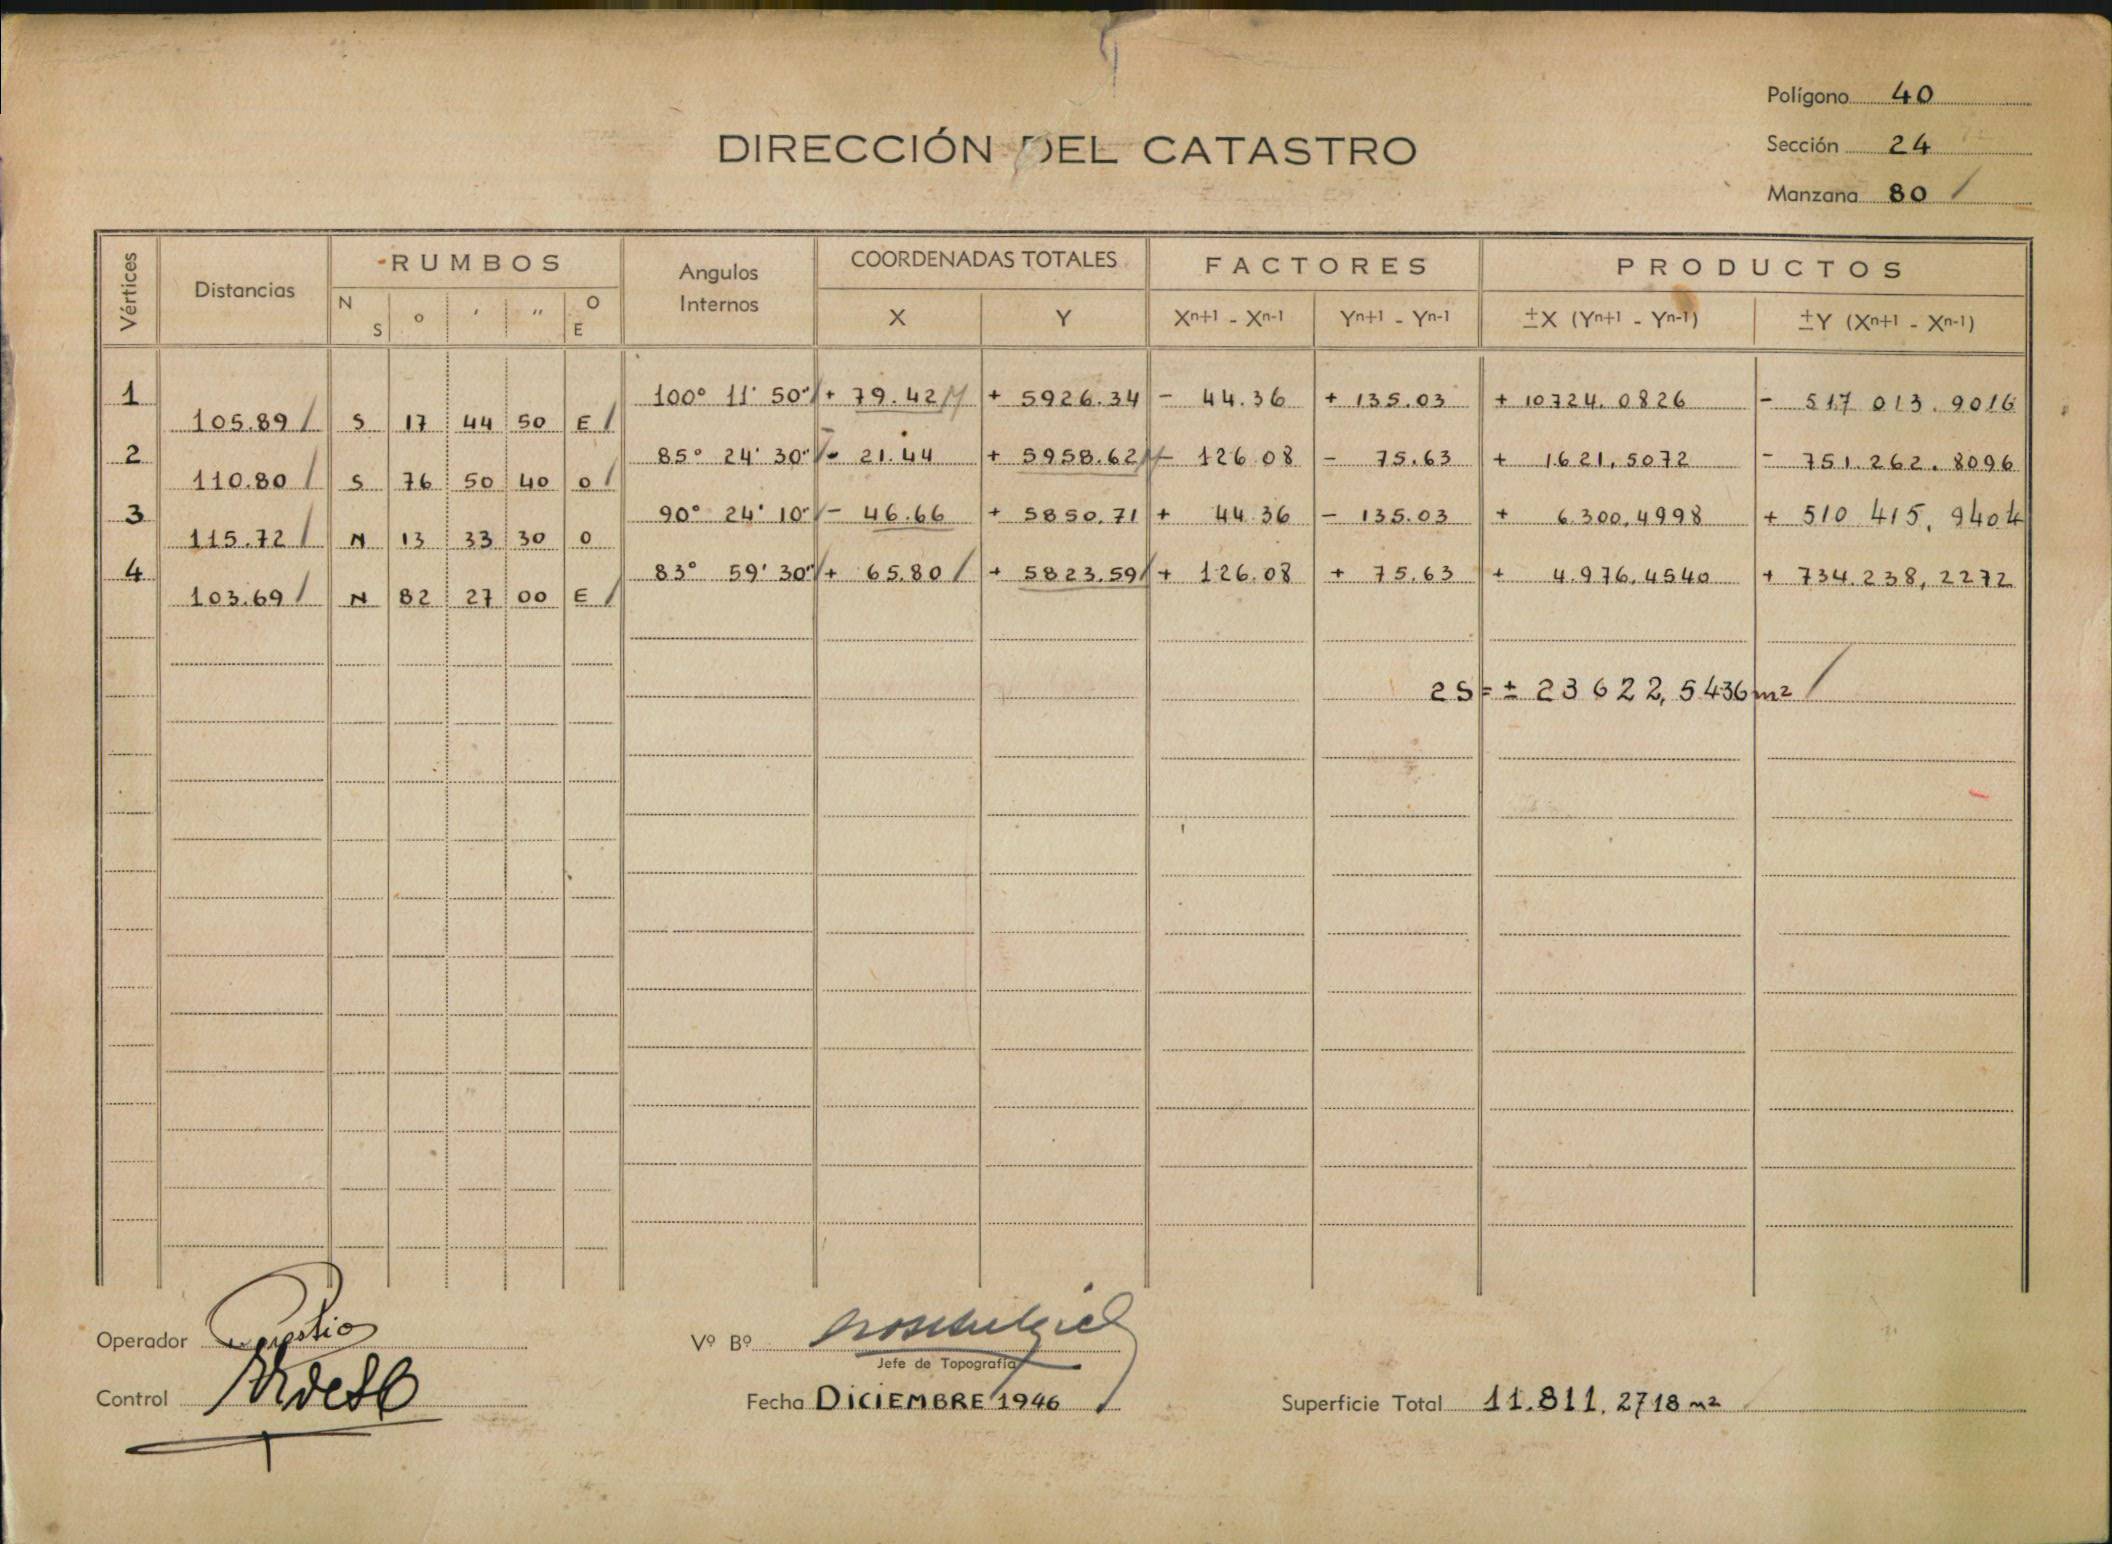 Polígono 40
DIRECCIÓN DEL CATASTRO
Sección 24
Manzana 80
Vértices
Distancias
RUMBOS
N S ° ' " O E
Angulos Internos
COORDENADAS TOTALES
X Y
FACTORES
Xn+1 - Xn-1 Yn+1 - Yn-1
PRODUCTOS
±X (Yn+1 - Yn-1) ±Y (Xn+1 - Xn-1)
1 100° 11' 50" + 79.42 + 5926.34 - 44.36 + 135.03 + 10724.0826 - 517 013.9016
105.89 S 17 44 50 E
2 85° 24' 30" - 21.44 + 5958.62 - 126.08 - 75.63 + 1.621,5072 - 751.262.8096
110.80 S 76 50 40 O
3 90° 24' 10" - 46.66 + 5850.71 + 44.36 - 135.03 + 6.300,4998 + 510 415,9404
115.72 N 13 33 30 O
4 83° 59' 30" + 65.80 + 5823.59 + 126.08 + 75.63 + 4.976,4540 + 734.238,2272
103.69 N 82 27 00 E
2S = ± 23622,5436 m²
Operador
Vº Bº
Jefe de Topografía
Control
Fecha DICIEMBRE 1946
Superficie Total 11.811,2718 m²